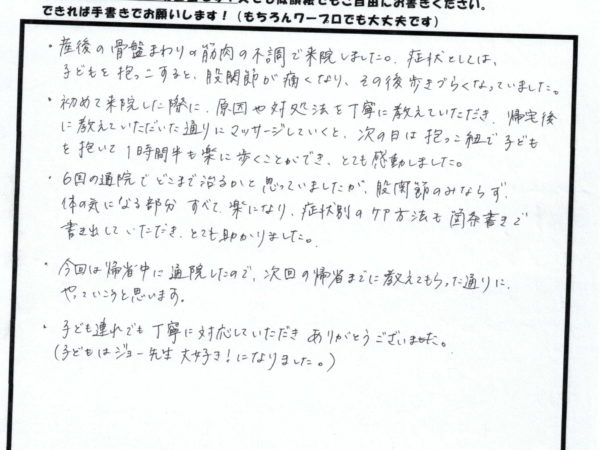 できれば手書きでお願いします!(もちろんワープロでも大丈夫です)
・産後の骨盤まわりの筋肉の不調で来院しました。症状としては、
子どもを抱っこすると、股関節が痛くなり、その後歩きづらくなっていました。
・初めて来院した際に、原因や対処法を丁寧に教えていただき、帰宅後
に教えていただいた通りにマッサージしていくと、次の日は抱っこ紐で子ども
を抱いて1時間半も楽に歩くことができ、とても感動しました。
・6回の通院でどこまで治るかと思っていましたが、股関節のみならず、
体の気になる部分すべて楽になり、症状別のケア方法も箇条書きで
書き出していただき、とても助かりました。
・今回は帰省中に通院したので、次回の帰省までに教えてもらった通りに、
やっていこうと思います。
・子ども連れでも丁寧に対応していただきありがとうございました。
(子どもはジョー先生大好き!になりました。)